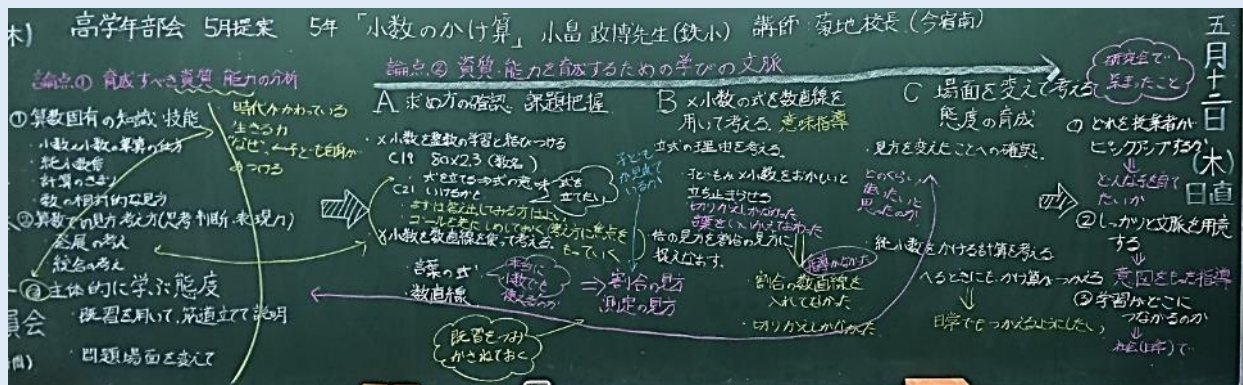 木)
高学年部会 5月提案 5年「小数のかけ算」 小畠 政博先生(鉄小) 講師:菊地校長(今宿南)
五月十二日(木)
日直
論点① 育成すべき資質・能力の分析
①算数固有の知識・技能
・小数×小数の筆算の仕方
・純小数倍
・計算のきまり
・数の相対的な見方
②算数での見方・考え方(思考・判断・表現力)
・発展の考え
・統合の考え
③主体的に学ぶ態度
・既習を用いて、筋道立てて説明
・問題場面を変えて
員会
時代がかわっている
生きる力
なぜ、
みつける
論点② 資質・能力を育成するための学びの文脈
A 求め方の確認 課題把握
×小数を整数の学習と結びつける
C19 80×2.3
・式を立てる⇒式の意味
C21 いけるかと
式を
立てたい
・まずは答え出してみる方はよい
もっていく
×小数を数直線を使って考える。
・言葉の式
・数直線
本当に
小数でも
使えるのか
⇒割合の見方
測定の見方
既習をつみ
かさねておく
子ども
が見通せ
ているか
B ×小数の式を数直線を
用いて考える。意味指導
立式の理由を考える。
・子どもが×小数をおかしいと
立ち止まらせる
切りかえしがなかった
倍の見方を割合の見方に
捉えなおす。
割合の数直線を
入れてなかった
・切りかえしがなかった
C 場面を変えて考える
態度の育成
・見方を変えたことへの確認。
どのくらい
使いたいと
思ったのか
・純小数をかける計算を考える
へるときにも、かけ算がつかえる
日常でもつかえるようにしたい
研究会で
深まったこと
① どれを授業者が
ピックアップするか
どんな子を育て
たいか
②しっかりと文脈を用意
する
意図をもった指導
③学習がどこに
つながるのか
社会(日常)で…